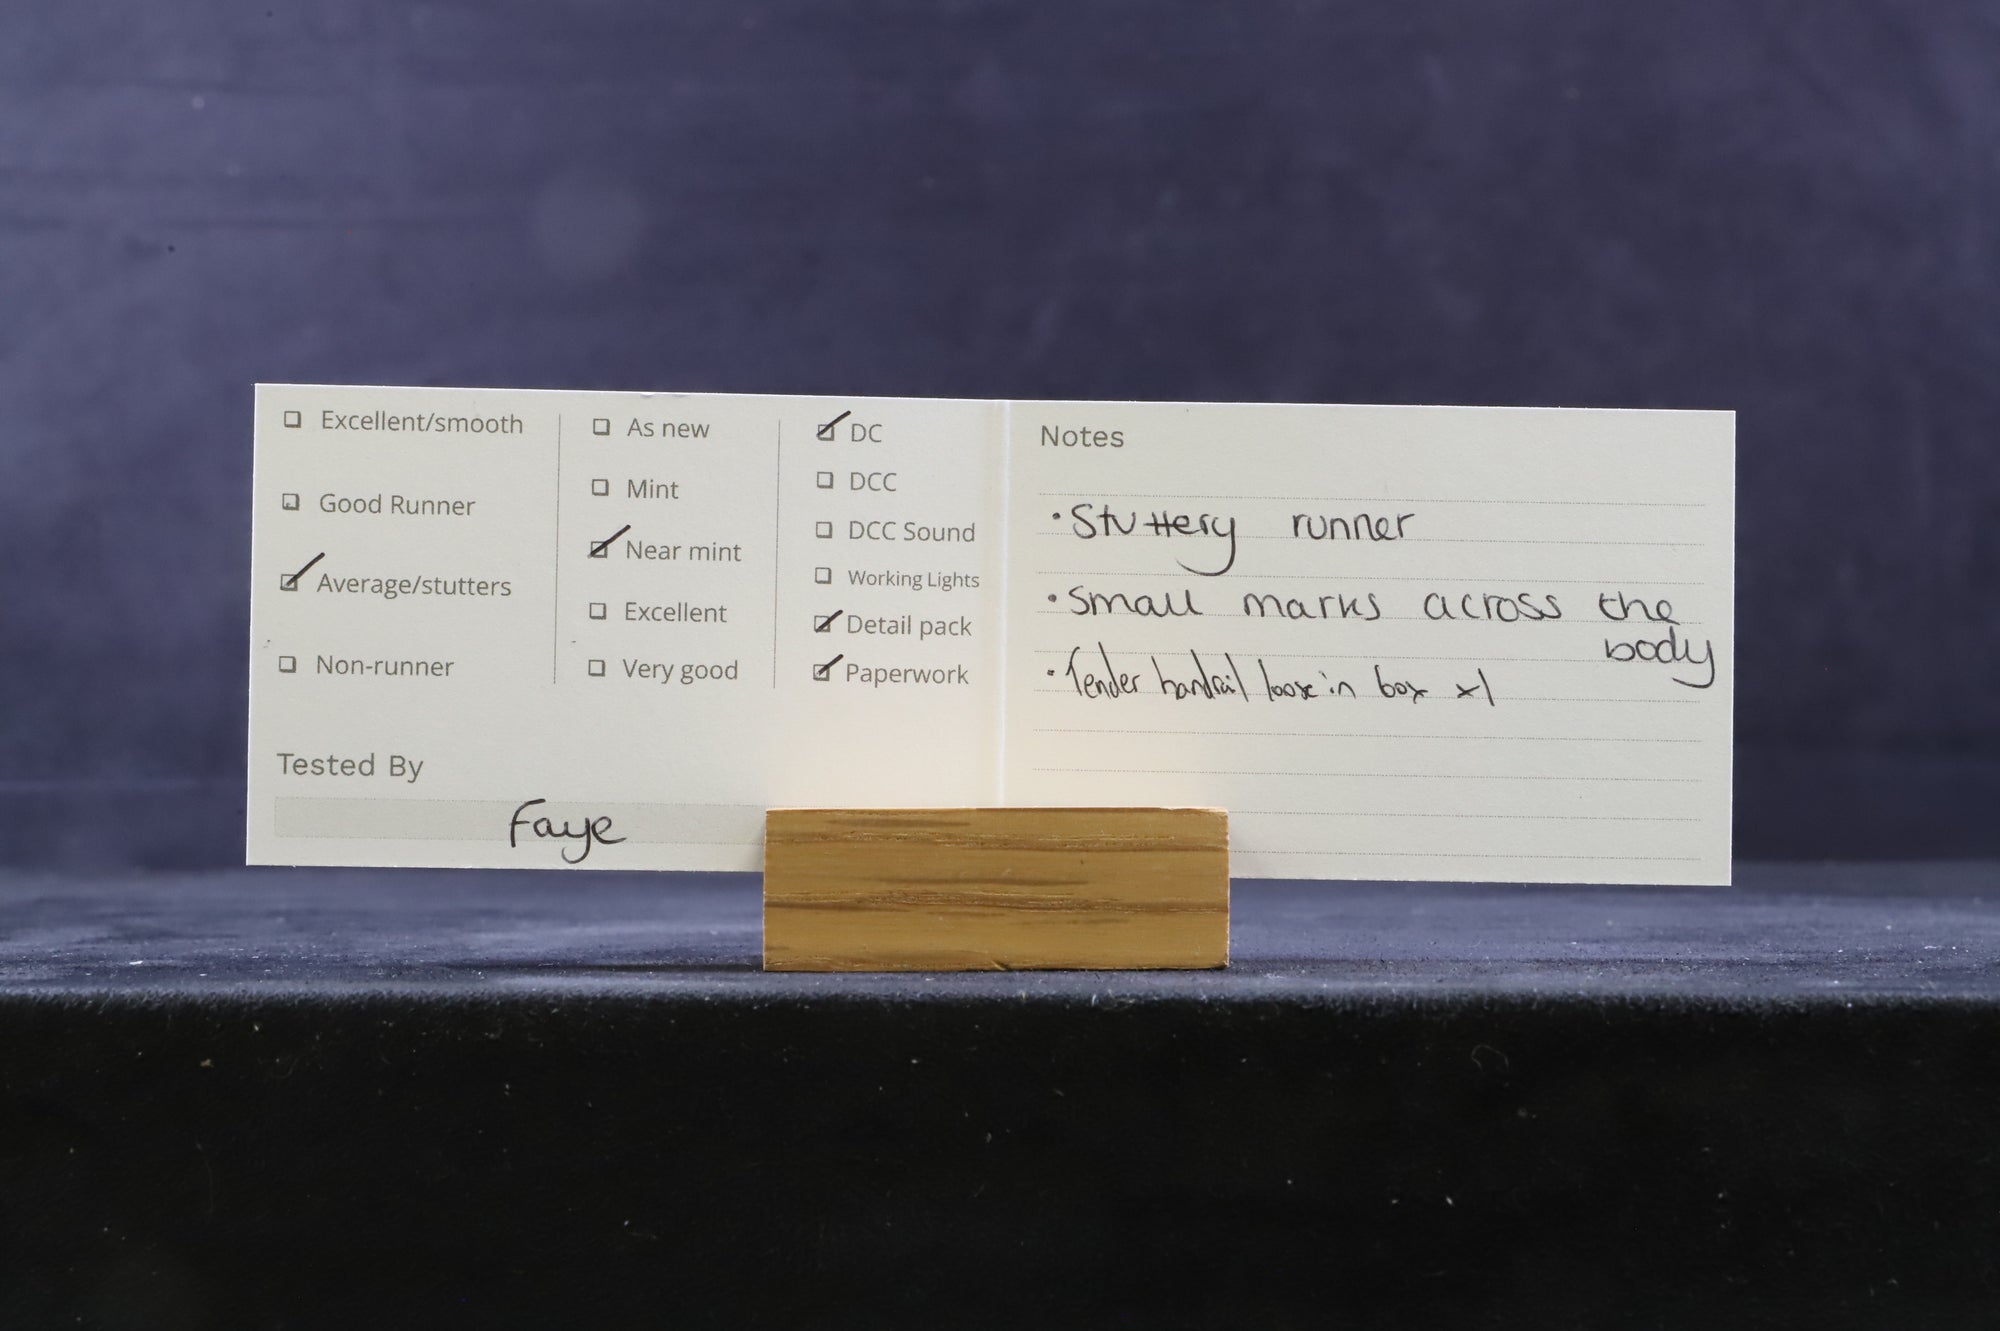 Excellent/smooth
Good Runner
Average/stutters
Non-runner
As new
Mint
Near mint
Excellent
Very good
DC
DCC
DCC Sound
Working Lights
Detail pack
Paperwork
Tested By
Faye
Notes
• Stuttery runner
• Small marks across the
body
• Tender handrail loose in box x1